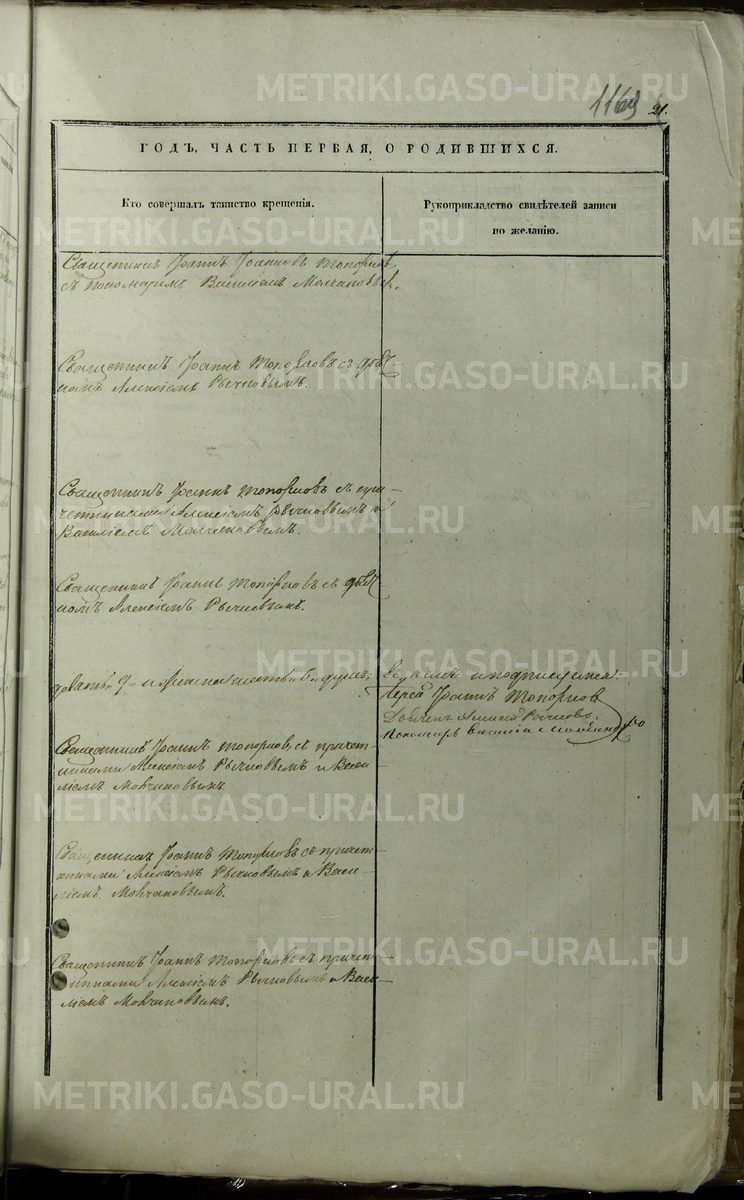 1169 21.
ГОДЪ, ЧАСТЬ ПЕРВАЯ, О РОДИВШИХСЯ.
Кто совершалъ таинство крещенія.
Рукоприкладство свидѣтелей записи
по желанію.
Священникъ Іоаннъ Іоанновъ Топорковъ
съ пономаремъ Василіемъ Молчановымъ.
Священникъ Іоаннъ Топорковъ съ дьяч
комъ Алексіемъ Рычковымъ.
Священникъ Іоаннъ Топорковъ съ при-
четниками Алексіемъ Рычковымъ и
Василіемъ Молчановымъ.
Священникъ Іоаннъ Топорковъ съ дьяч
комъ Алексіемъ Рычковымъ.
девять 9 и женска шесть 6 душъ;
въ чемъ и подписуемся:
Іерей Іоаннъ Топорковъ
Дьячекъ Алексей Рычковъ.
Пономарь Василій Молчановъ
Священникъ Іоаннъ Топорковъ, съ причет
никами Алексіемъ Рычковымъ и Васи
ліемъ Молчановымъ.
Священникъ Іоаннъ Топорковъ съ причет
никами Алексіемъ Рычковымъ и Васи-
ліемъ Молчановымъ.
Священникъ Іоаннъ Топорковъ съ причет
никами Алексіемъ Рычковымъ и Васи-
ліемъ Молчановымъ.
METRIKI.GASO-URAL.RU